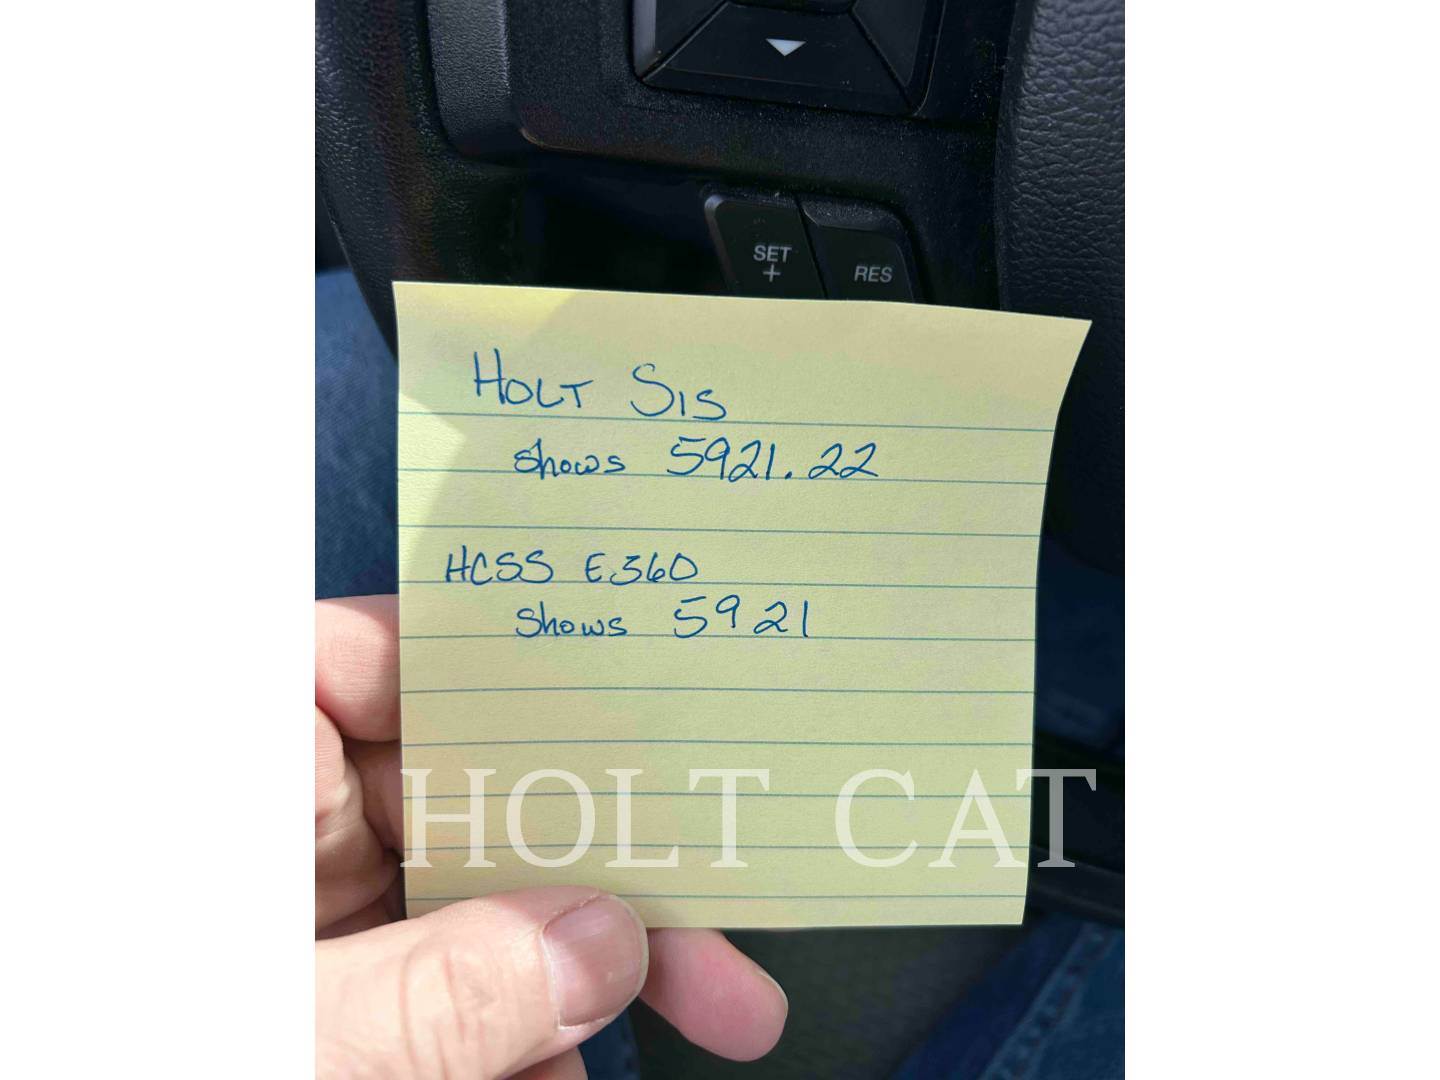 SET
+
RES
HOLT SIS
shows 5921.22
HCSS E360
shows 5921
HOLT CAT